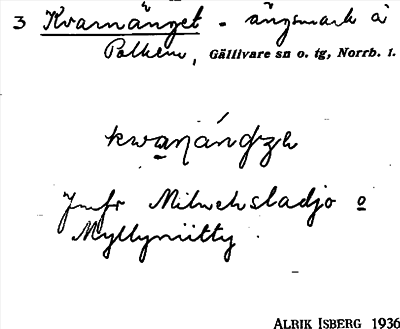 3 Kvarnänget - ängsmark å
Polkem, Gällivare sn o. tg, Norrb. l.
Jmfr Milwehsladjo o
Myllyniitty.
ALRIK ISBERG 1936